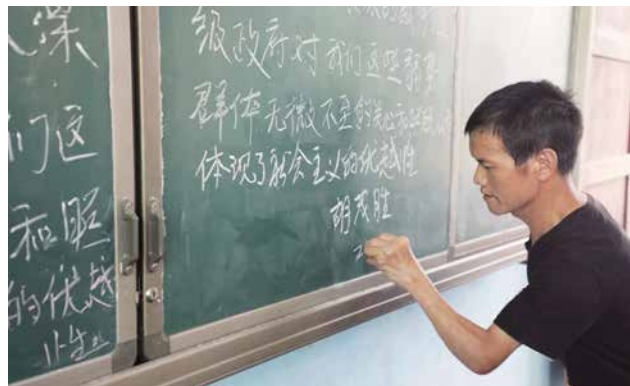 深
们这
和照
的优越
级政府对我们这些弱势
群体无微不至的关心和照顾
体现了社会主义的优越性
胡茂胜